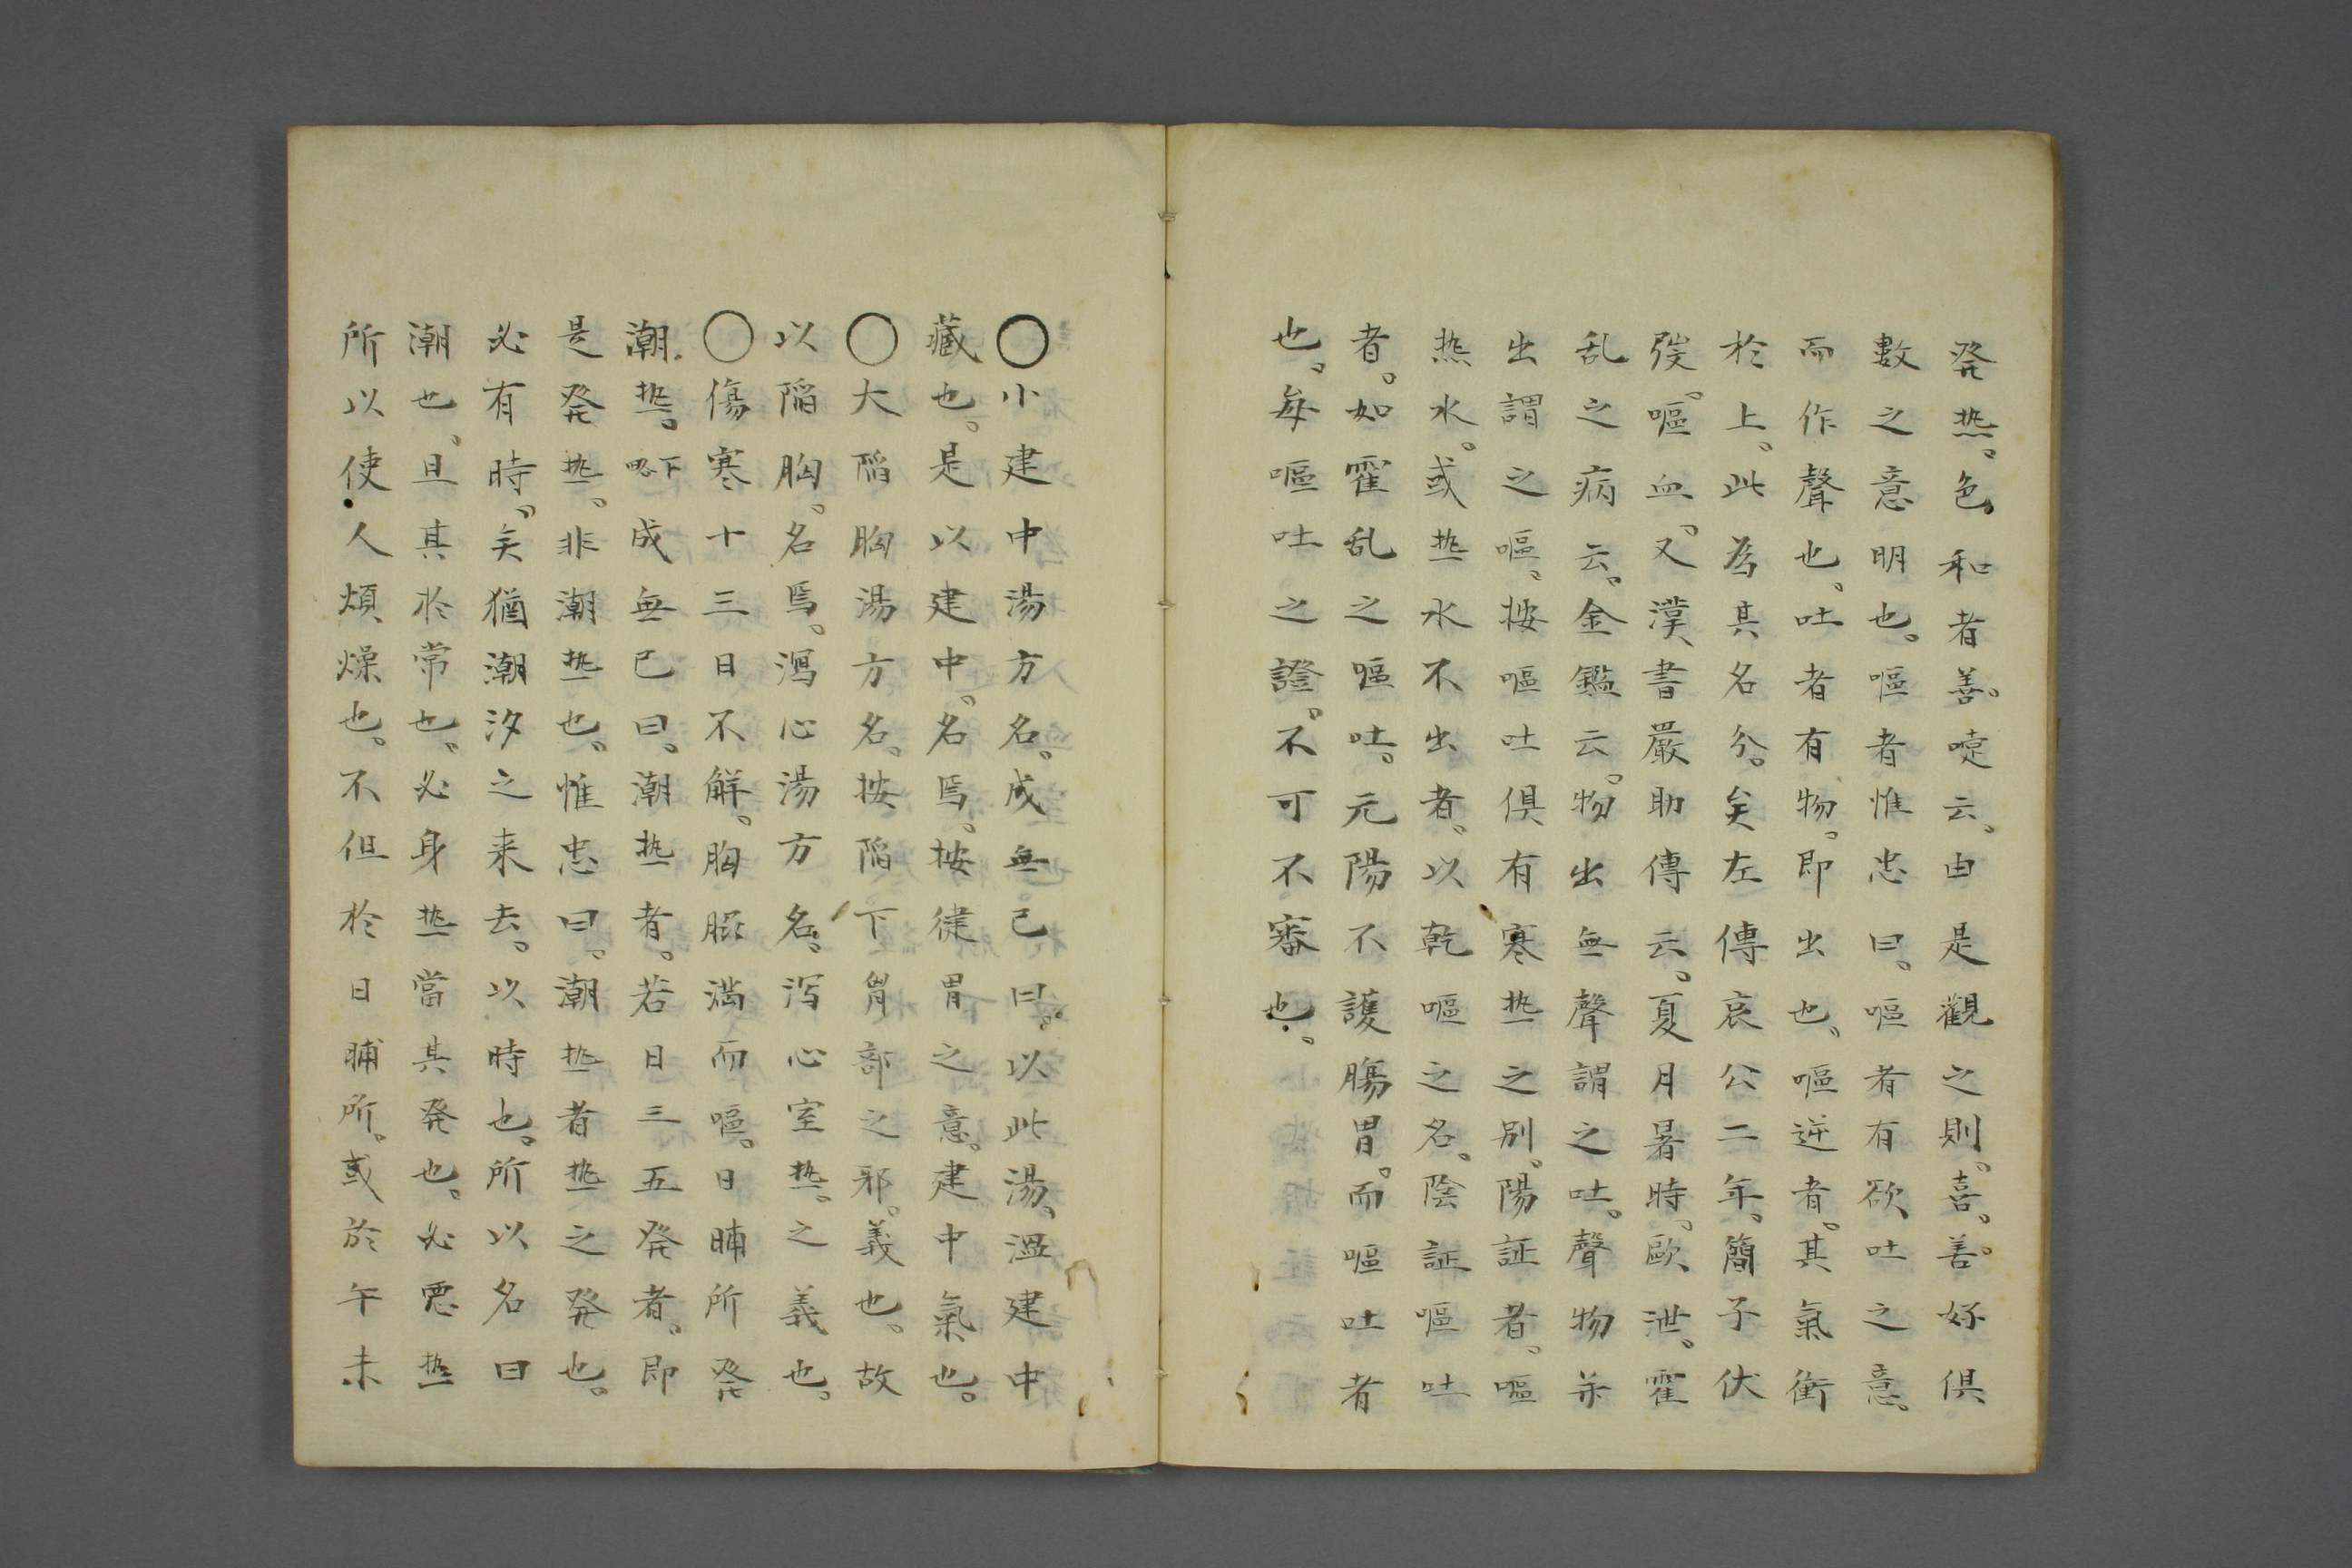 発热。色和者善。啶云。由是觀之則。喜。善。好俱
數之意明也。嘔者惟忠曰。嘔者有欲吐之意。
而作聲也、吐者有物。即出也、嘔逆者。其氣衝
於上。此為其名分。矣左傳哀公二年。簡子伏
弢。嘔血。又漢書嚴助傳云。夏月暑時。歐泄。霍
乱之病云。金鑑云。物出無聲謂之吐。聲物并
出謂之嘔。按嘔吐俱有寒热之別。陽証者。嘔
热水。或热水不出者。以乾嘔之名。陰証嘔吐
者。如霍乱之嘔吐。元陽不護腸胃。而嘔吐者
也。每嘔吐之證。不可不審也。
○小建中湯方名。成無己曰。以此湯。溫建中
藏也。是以建中。名焉。按健胃之意。建中氣也。
○大陷胸湯方名。按陷下胷部之邪。義也。故
以陷胸。名焉。瀉心湯方名。泻心室热。之義也。
○傷寒十三日不解。胸脇満而嘔。日晡所発
潮热。下略成無已曰。潮热者。若日三五発者。即
是発热。非潮热也。惟忠曰。潮热者热之発也。
必有時。矣猶潮汐之来去。以時也。所以名曰
潮也、且其於常也。必身热當其発也。必悪热
所以使人煩燥也。不但於日晡所。或於午未